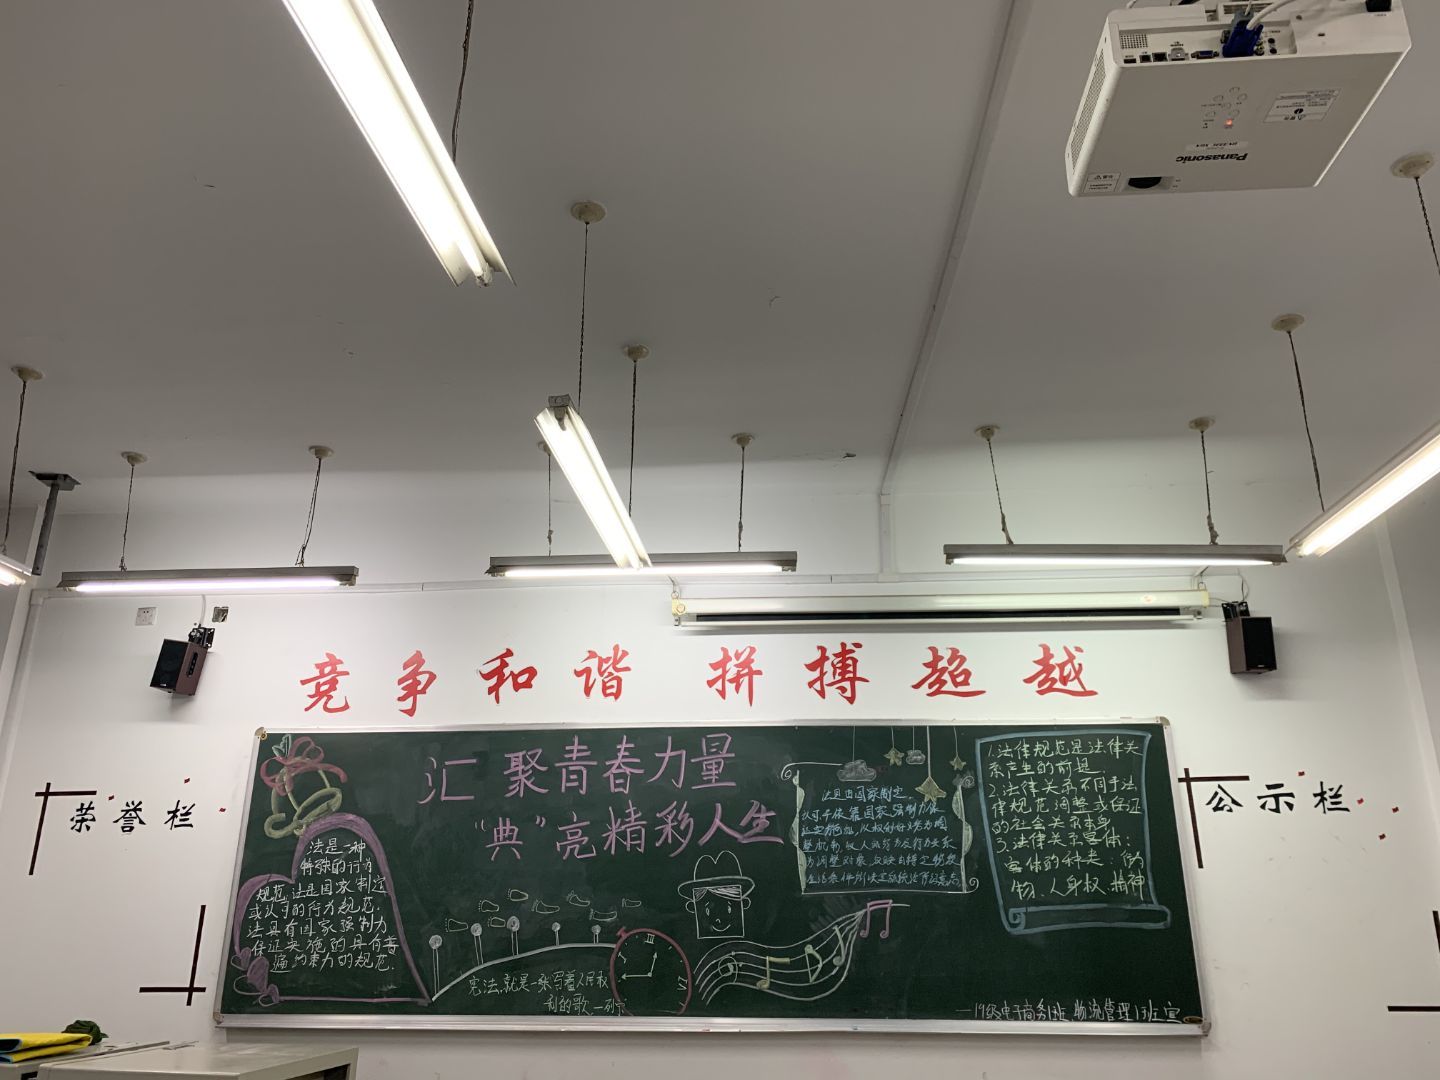 Panasonic
竞争和谐 拼搏超越
荣誉栏
公示栏
汇聚青春力量
“典”亮精彩人生
法是一种
特殊的行为
规范,法是国家制定
或认可的行为规范.
法具有国家强制力
保证实施的具有普
遍约束力的规范.
宪法,就是一张写着人民权
利的歌.—列宁
法是由国家制定
认可,并依靠国家强制力保
证实施的,以权利和义务为调
整机制,以人的行为及行为关系
为调整对象,反映由特定物质
1.法律规范是法律关
系产生的前提.
2.法律关系不同于法
律规范调整或保证
的社会关系本身
3.法律关系客体:
客体的种类:
物、人身权、精神
—19级电子商务1班、物流管理1班宣